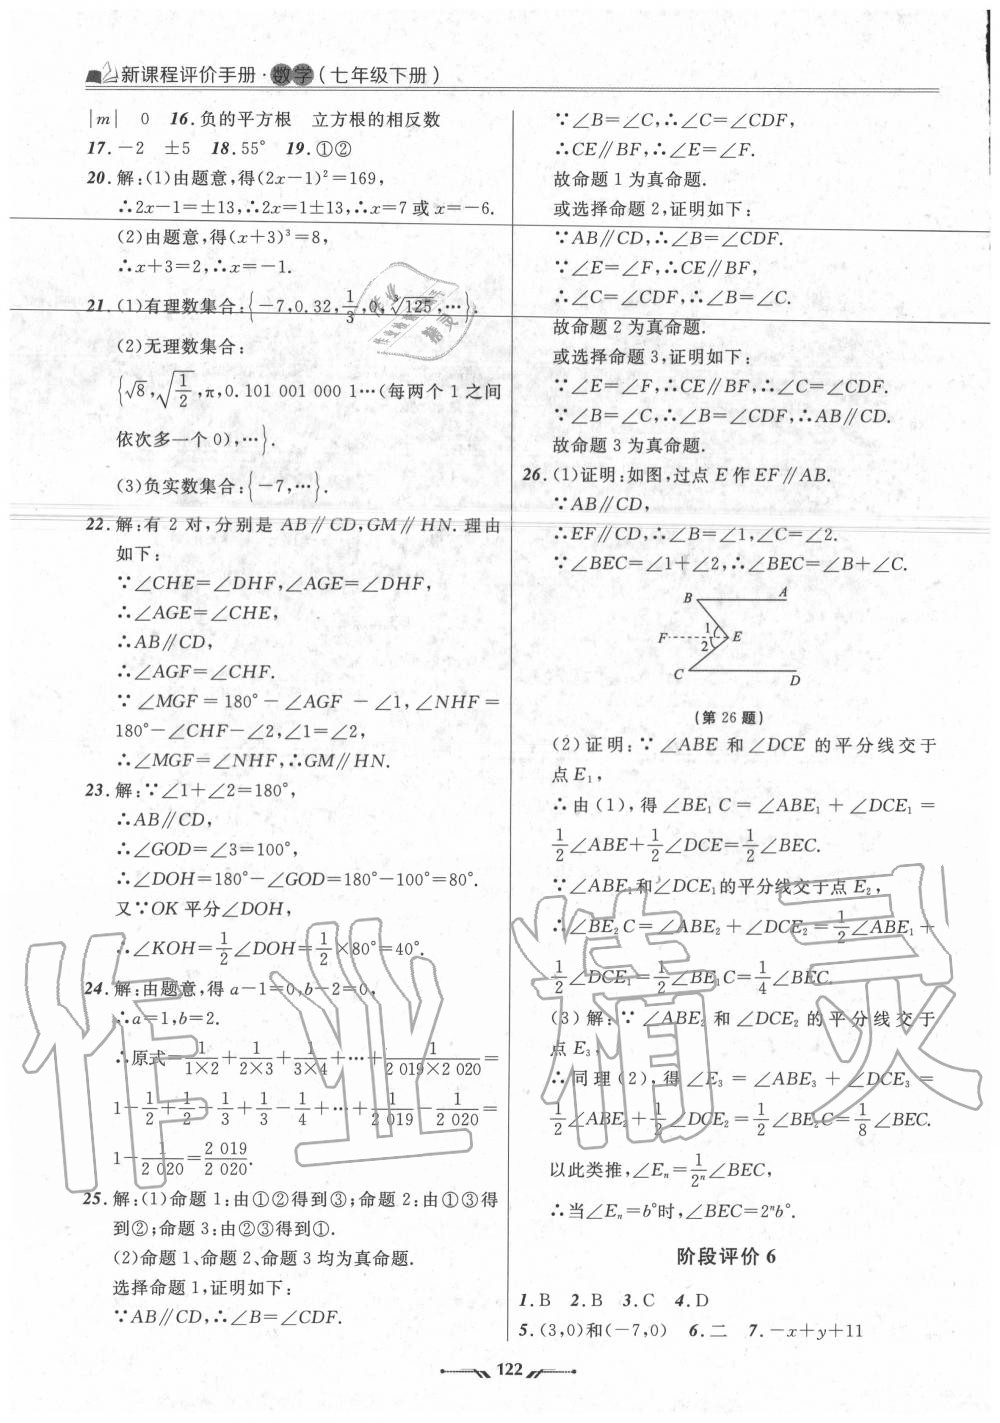 新课程评价手册·数学(七年级下册)
|m|　0　16.负的平方根　立方根的相反数
17.－2　±5　18.55°　19.①②
20.解:(1)由题意,得(2x－1)²＝169,
∴2x－1＝±13,∴2x＝1±13,∴x＝7 或 x＝－6.
(2)由题意,得(x＋3)³＝8,
∴x＋3＝2,∴x＝－1.
21.(1)有理数集合:{－7,0.32,1/3,0,∛125,…}.
(2)无理数集合:
{√8,√(1/2),π,0.101 001 000 1…(每两个 1 之间
依次多一个 0),…}.
(3)负实数集合:{－7,…}.
22.解:有 2 对,分别是 AB∥CD,GM∥HN. 理由
如下:
∵∠CHE＝∠DHF,∠AGE＝∠DHF,
∴∠AGE＝∠CHE,
∴AB∥CD,
∴∠AGF＝∠CHF.
∵∠MGF＝180°－∠AGF－∠1,∠NHF＝
180°－∠CHF－∠2,∠1＝∠2,
∴∠MGF＝∠NHF,∴GM∥HN.
23.解:∵∠1＋∠2＝180°,
∴AB∥CD,
∴∠GOD＝∠3＝100°,
∴∠DOH＝180°－∠GOD＝180°－100°＝80°.
又∵OK 平分∠DOH,
∴∠KOH＝1/2∠DOH＝1/2×80°＝40°.
24.解:由题意,得 a－1＝0,b－2＝0,
∴a＝1,b＝2.
∴原式＝1/(1×2)＋1/(2×3)＋1/(3×4)＋…＋1/(2 019×2 020)＝
1－1/2＋1/2－1/3＋1/3－1/4＋…＋1/2 019－1/2 020＝
1－1/2 020＝2 019/2 020.
25.解:(1)命题 1:由①②得到③;命题 2:由①③得
到②;命题 3:由②③得到①.
(2)命题 1、命题 2、命题 3 均为真命题.
选择命题 1,证明如下:
∵AB∥CD,∴∠B＝∠CDF.
∵∠B＝∠C,∴∠C＝∠CDF,
∴CE∥BF,∴∠E＝∠F.
故命题 1 为真命题.
或选择命题 2,证明如下:
∵AB∥CD,∴∠B＝∠CDF.
∵∠E＝∠F,∴CE∥BF,
∴∠C＝∠CDF,∴∠B＝∠C.
故命题 2 为真命题.
或选择命题 3,证明如下:
∵∠E＝∠F,∴CE∥BF,∴∠C＝∠CDF.
∵∠B＝∠C,∴∠B＝∠CDF,∴AB∥CD.
故命题 3 为真命题.
26.(1)证明:如图,过点 E 作 EF∥AB.
∵AB∥CD,
∴EF∥CD,∴∠B＝∠1,∠C＝∠2.
∵∠BEC＝∠1＋∠2,∴∠BEC＝∠B＋∠C.
B　A
1
F　E
2
C　D
(第 26 题)
(2)证明:∵∠ABE 和∠DCE 的平分线交于
点 E₁,
∴由(1),得∠BE₁C＝∠ABE₁＋∠DCE₁＝
1/2∠ABE＋1/2∠DCE＝1/2∠BEC.
∵∠ABE₁和∠DCE₁的平分线交于点 E₂,
∴∠BE₂C＝∠ABE₂＋∠DCE₂＝1/2∠ABE₁＋
1/2∠DCE₁＝1/2∠BE₁C＝1/4∠BEC.
(3)解:∵∠ABE₂ 和∠DCE₂ 的平分线交于
点 E₃,
∴同理(2),得∠E₃＝∠ABE₃＋∠DCE₃＝
1/2∠ABE₂＋1/2∠DCE₂＝1/2∠BE₂C＝1/8∠BEC.
以此类推,∠Eₙ＝1/2ⁿ∠BEC,
∴当∠Eₙ＝b°时,∠BEC＝2ⁿb°.
阶段评价 6
1.B　2.B　3.C　4.D
5.(3,0)和(－7,0)　6.二　7.－x＋y＋11
122
作业精灵